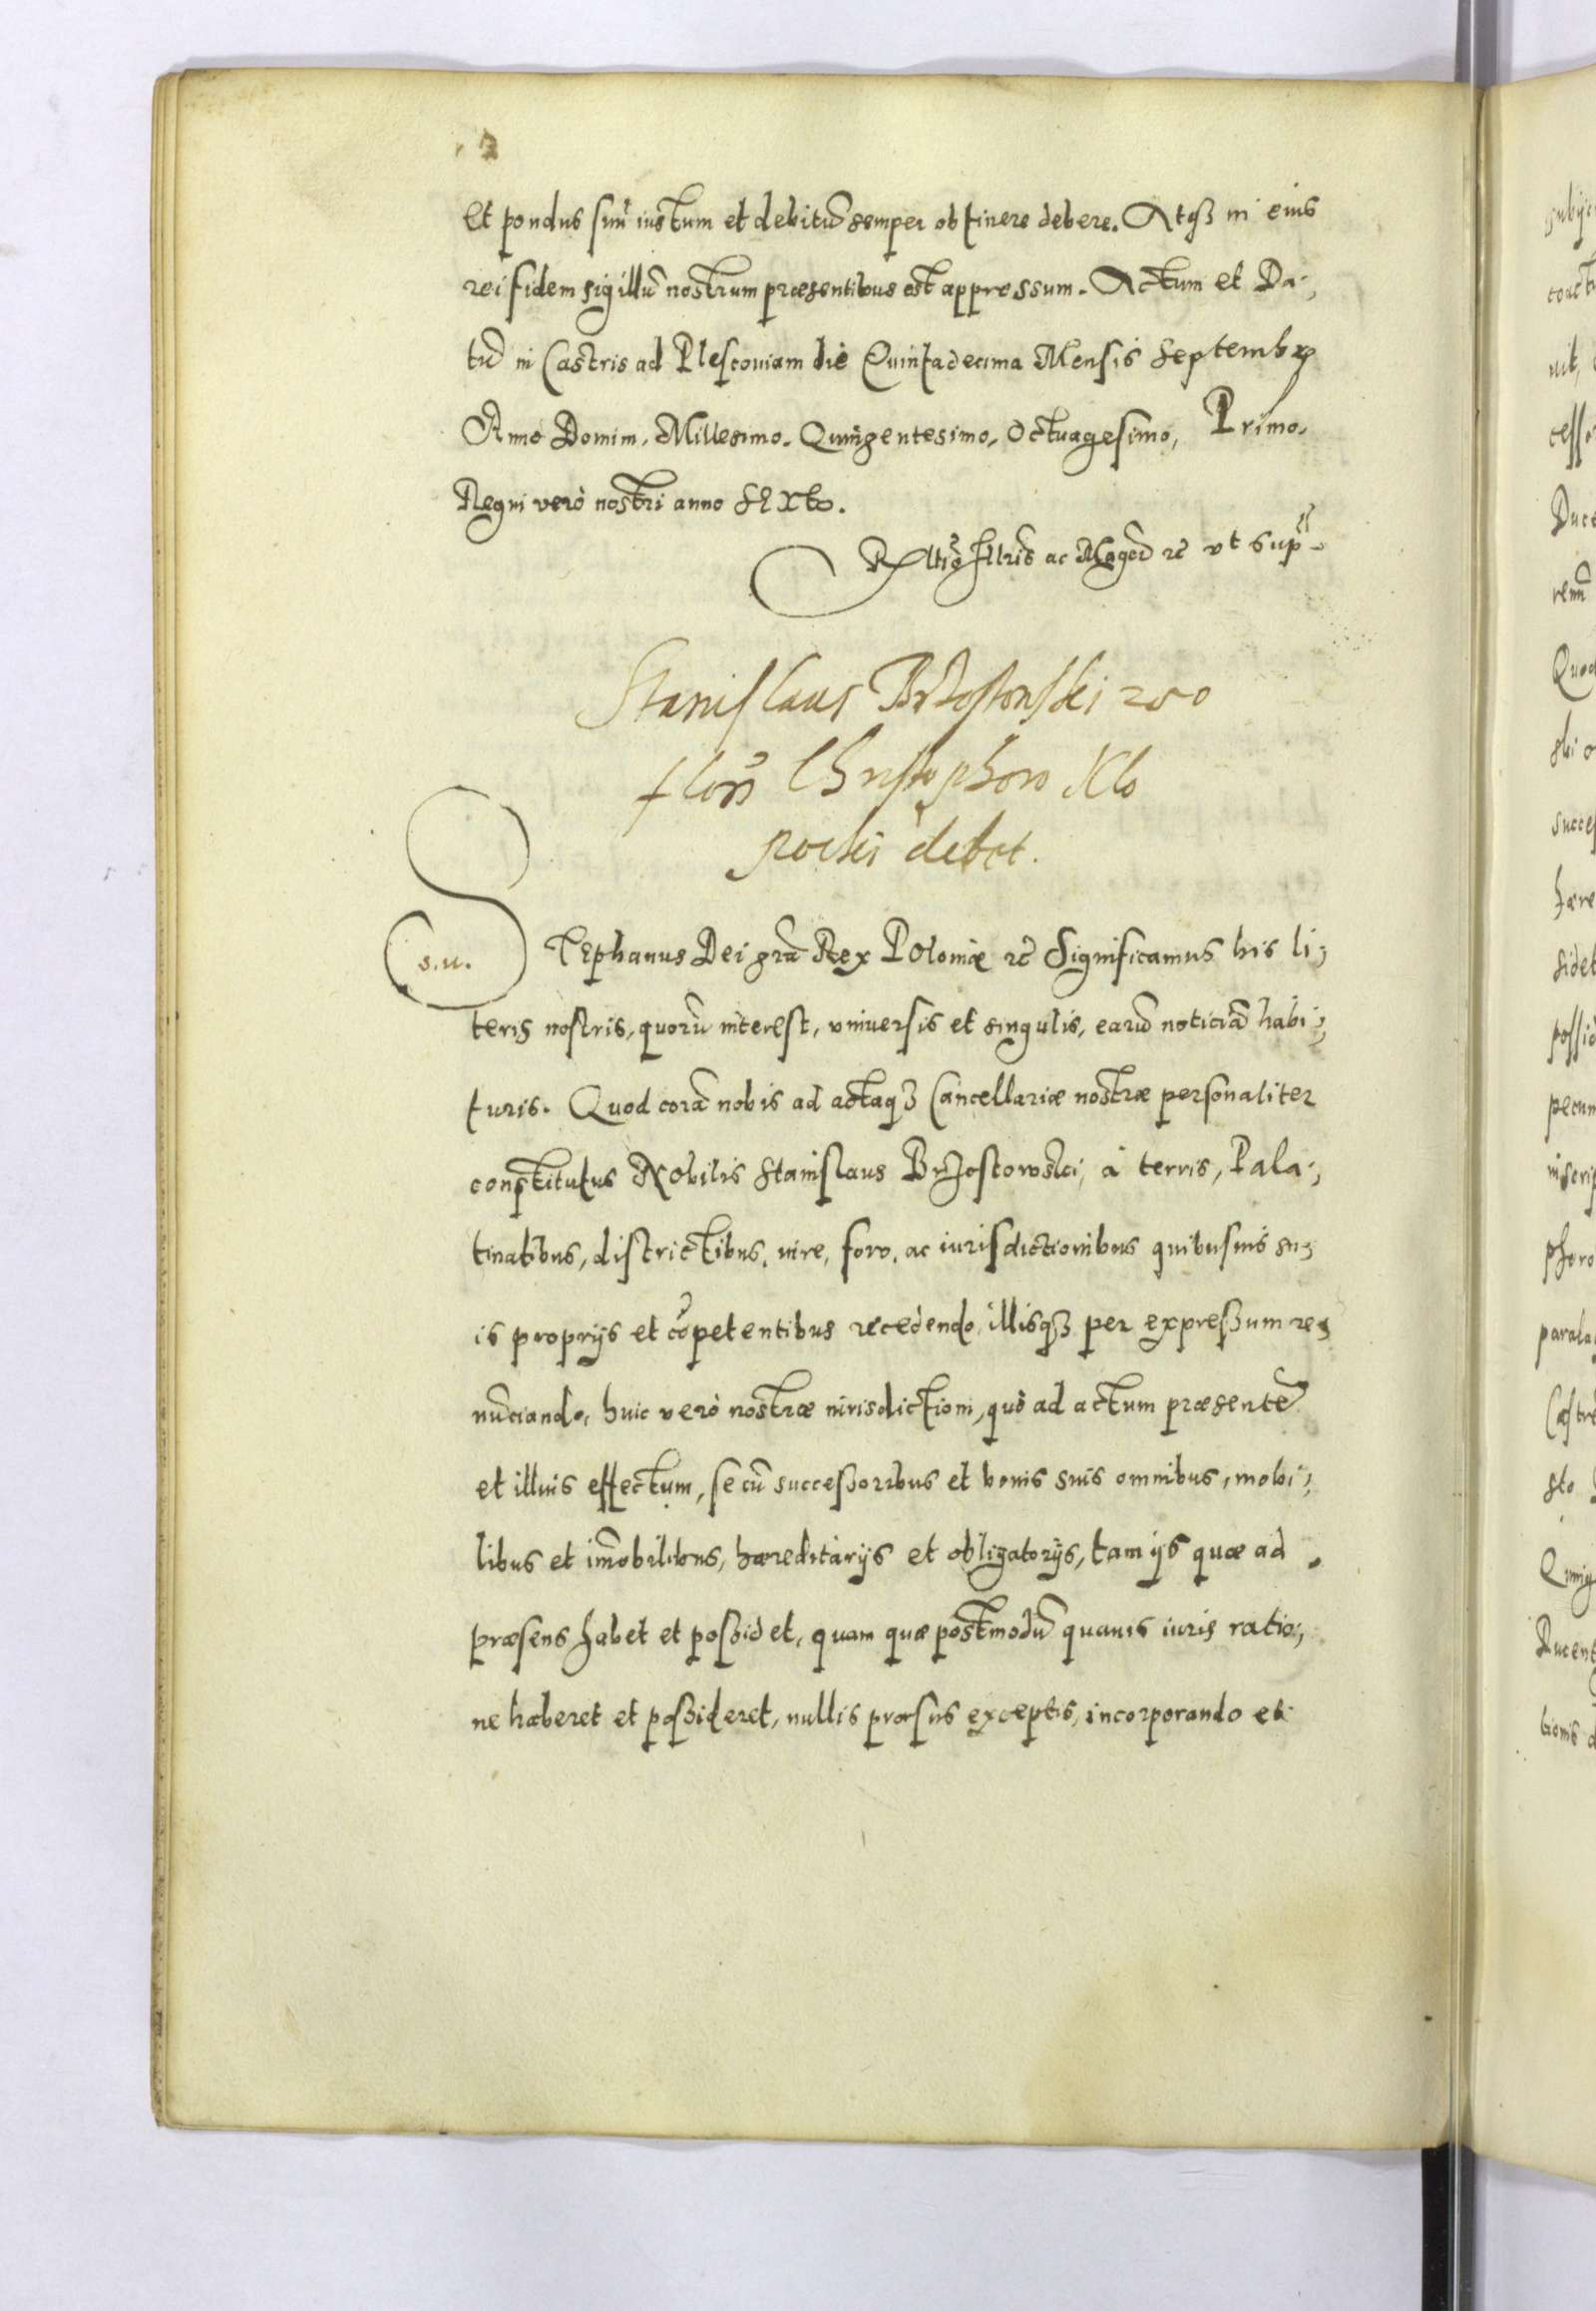 et pondus suũ iustum et debitũ semper obtinere debere. Atqꝫ in eius
rei fidem sigillũ nostrum præsentibus est appressum. Actum et Da-,
tũ in Castris ad Plescouiam die Quintadecima Mensis Septembꝝ
Anno Domini. Millesimo. Quingentesimo. Octuagesimo, Primo.
Regni verò nostri anno Sexto.
R̃ltio Illris ac Magcĩ ꝛc̃ vt sup̃
Stanislaus Brzostowski 200
flor̃ Christophoro Klo
pocki debet.
s.u.
STephanus Dei grã Rex Poloniæ ꝛc̃ Significamus his li-,
teris nostris, quorũ interest, vniuersis et singulis, earũ noticiã habi-,
turis. Quod corã nobis ad actaqꝫ Cancellariæ nostræ personaliter
constitutus Nobilis Stanislaus Brzostowski, à terris, Pala-,
tinatibus, districtibus, iure, foro, ac iurisdictionibus quibusuis su-,
is proprijs et cõpetentibus recedendo, illisqꝫ per expreßum re-,
nũciando, huic verò nostræ iurisdictioni, quò ad actum præsentẽ
et illius effectum, se cũ succeßoribus et bonis suis omnibus, mobi-,
libus et im̃obilibus, hæreditarijs et obligatorijs, tam ijs quæ ad
præsens habet et poßidet, quam quæ postmodũ quauis iuris ratio-,
ne haberet et poßideret, nullis prorsus exceptis, incorporando et